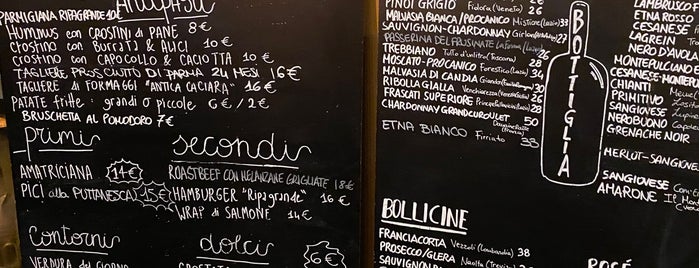 Antipasti
PARMIGIANA RIPAGRANDE 10€
HUMMUS con CROSTINI di PANE 8€
CROSTINO con BURRATA & ALICI 8€
CROSTINO con CAPOCOLLO & CACIOTTA 10€
TAGLIERE PROSCIUTTO DI PARMA 24 MESI 16€
TAGLIERE di FORMAGGI "ANTICA CACIARA" 16€
PATATE fritte: grandi o piccole 6€/2€
BRUSCHETTA AL POMODORO 7€
primi
AMATRICIANA 14€
PICI alla PUTTANESCA 15€
contorni
VERDURA del GIORNO
secondi
ROASTBEEF CON MELANZANE GRIGLIATE 18€
HAMBURGER "Ripagrande" 16€
WRAP di SALMONE 14€
dolci 6€
CROSTATA
PINOT GRIGIO Fidora (Veneto) 26
MALVASIA BIANCA/PROCANICO Mistione (Lazio) 33
SAUVIGNON-CHARDONNAY
PASSERINA DEL FRUSINATE
TREBBIANO Tutto d'un litro (Toscana)
MOSCATO-PROCANICO Forestico (Lazio) 34
MALVASIA DI CANDIA
RIBOLLA GIALLA
FRASCATI SUPERIORE
CHARDONNAY GRANDCUROULET 50
ETNA BIANCO Firriato 33
BOTTIGLIA
BOLLICINE
FRANCIACORTA Vezzoli (Lombardia) 38
PROSECCO/GLERA Naolta (Treviso) 28
SAUVIGNON
LAMBRUSCO
ETNA ROSSO
CESANESE
LAGREIN
NERO D'AVOLA
MONTEPULCIANO
CESANESE-MONTEP
CHIANTI
PRIMITIVO
SANGIOVESE
NEROBUONO
GRENACHE NOIR
MERLOT-SANGIOVE
SANGIOVESE
AMARONE
ROSÉ